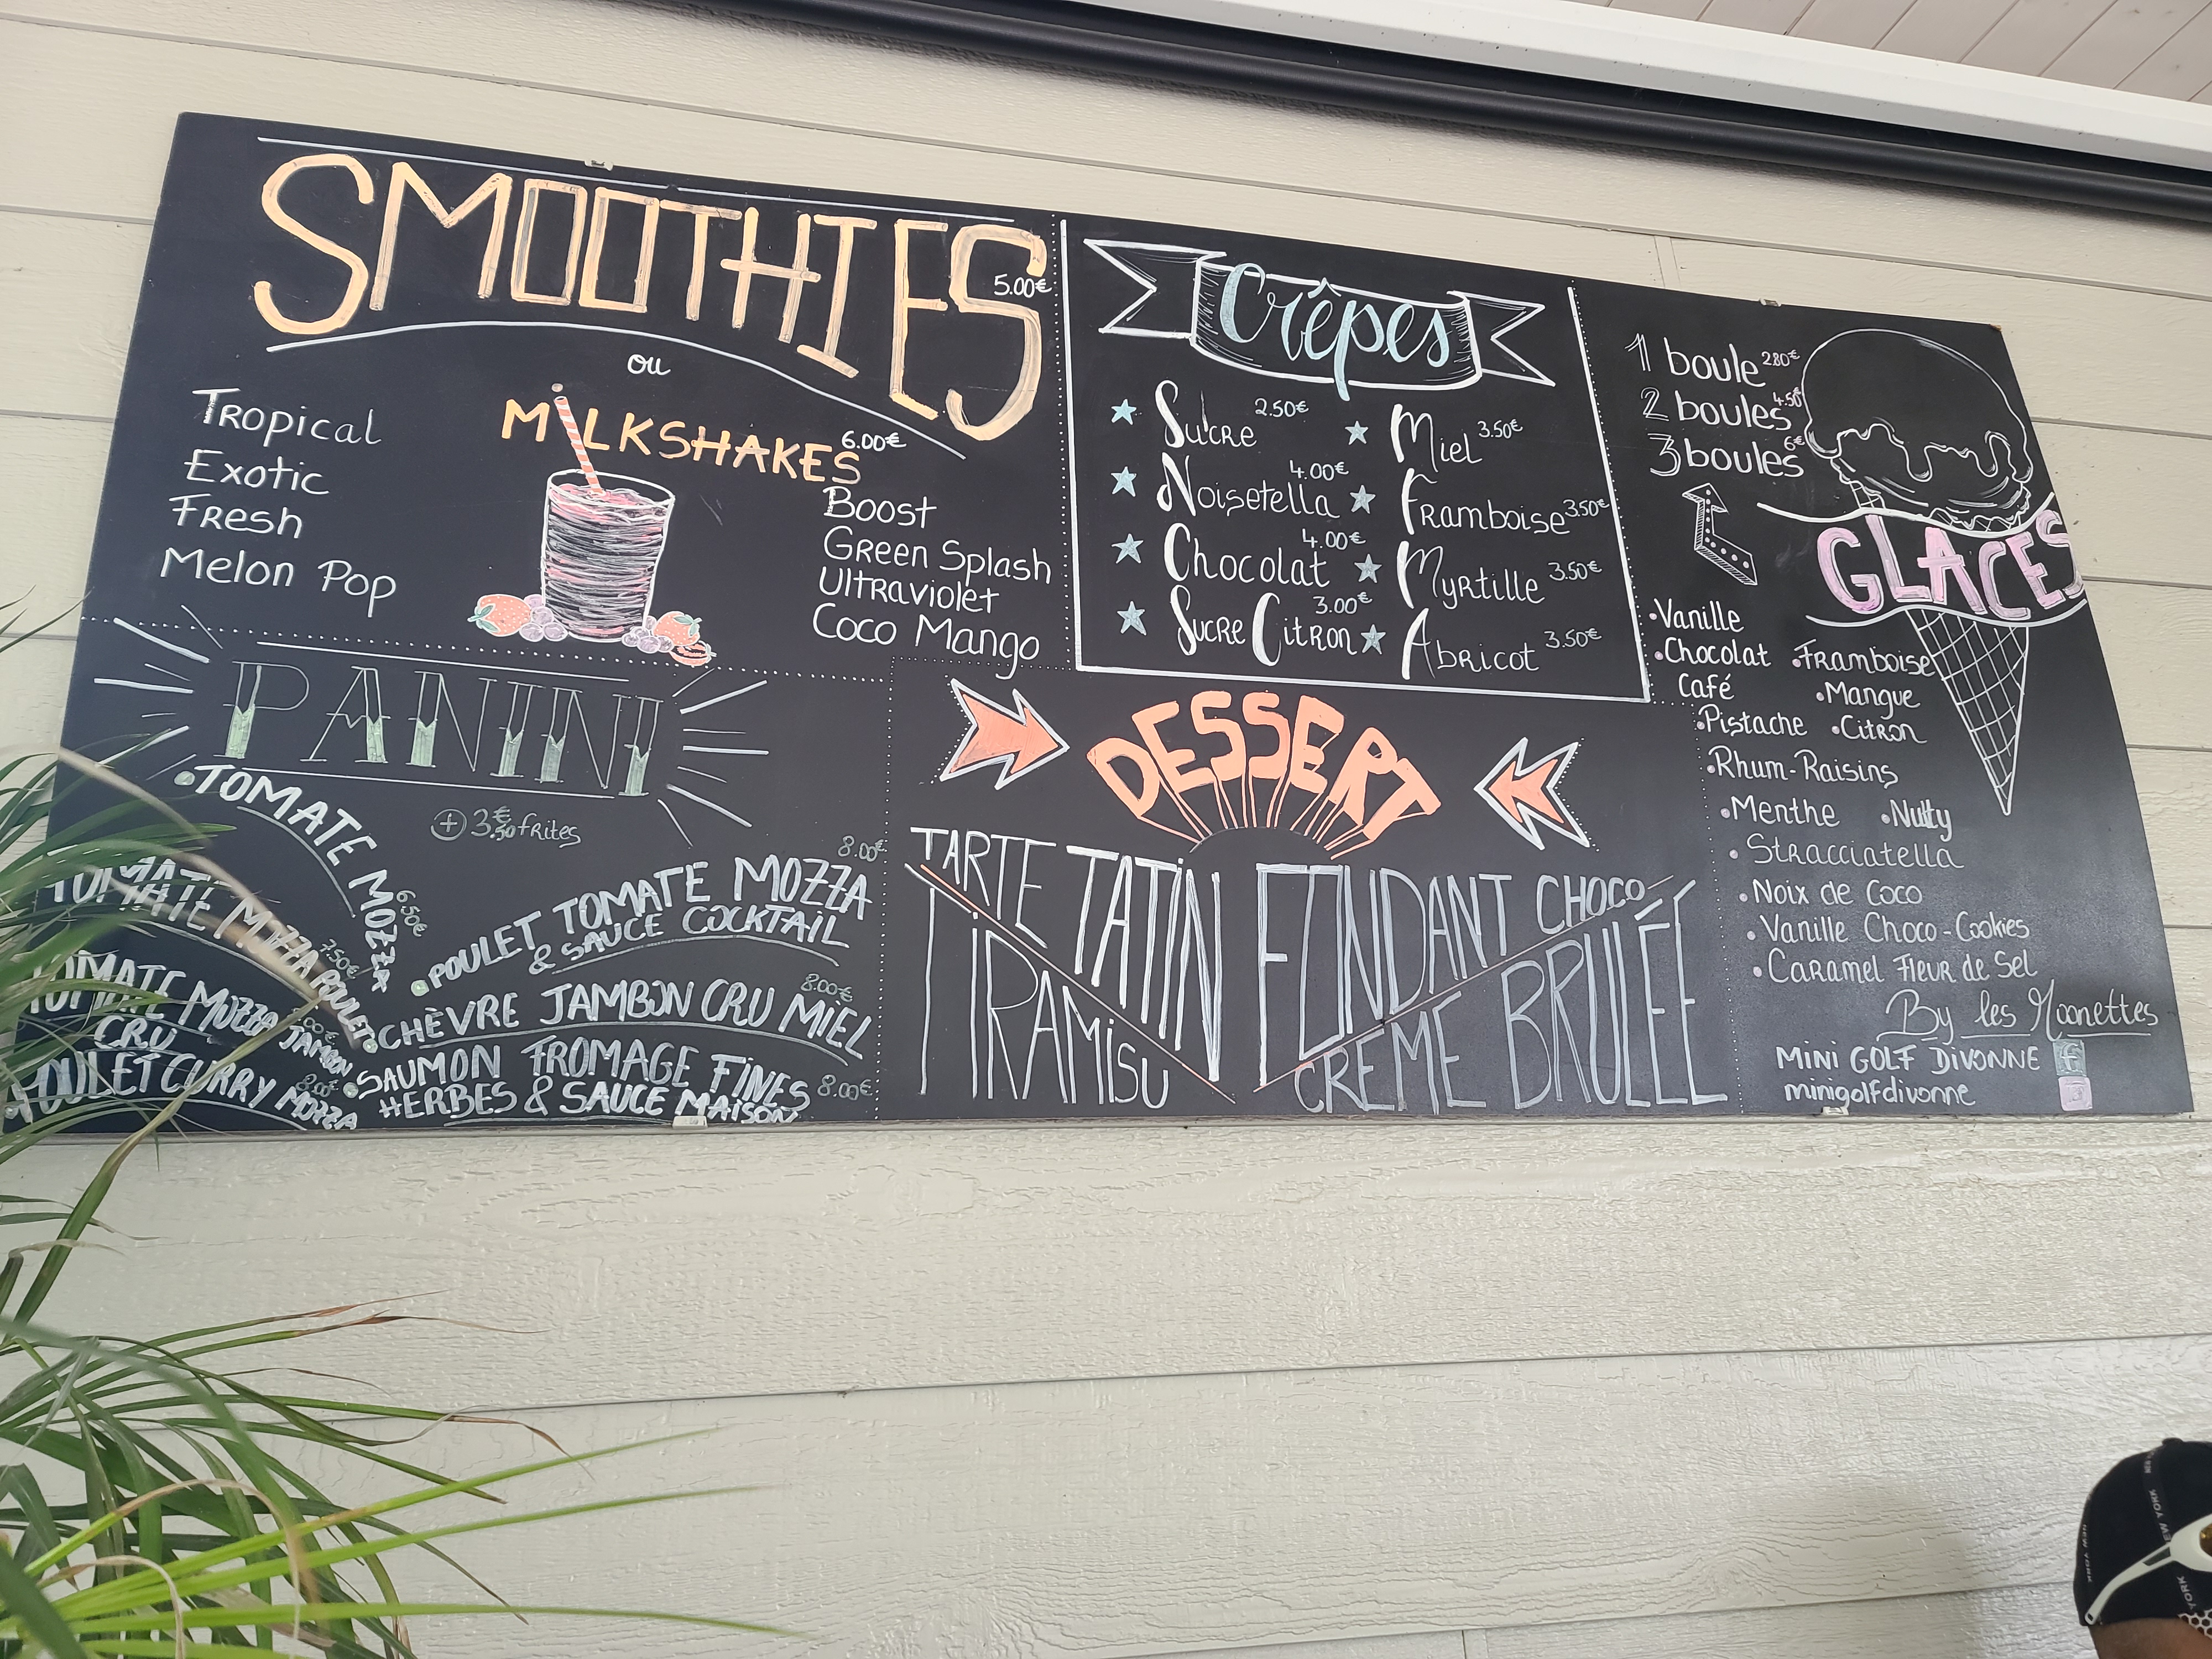 SMOOTHIES 5.00€
ou
MILKSHAKES 6.00€
Tropical
Exotic
Fresh
Melon Pop
Boost
Green Splash
Ultraviolet
Coco Mango
Crêpes
Sucre 2.50€
Noisetella 4.00€
Chocolat 4.00€
Sucre Citron 3.00€
Miel 3.50€
Framboise 3.50€
Myrtille 3.50€
Abricot 3.50€
1 boule 2.80€
2 boules 4.50€
3 boules 6€
GLACES
•Vanille
•Chocolat •Framboise
Café •Mangue
•Pistache •Citron
•Rhum-Raisins
•Menthe •Nutty
•Stracciatella
•Noix de Coco
•Vanille Choco-Cookies
•Caramel Fleur de Sel
By les Moonettes
MINI GOLF DIVONNE f
minigolfdivonne
PANINI
+ 3.50€ frites
•TOMATE MOZZA 6.50€
TOMATE MOZZA POULET 7.50€
TOMATE MOZZA JAMBON
CRU
POULET CURRY MOZZA 8.00€
•POULET TOMATE MOZZA 8.00€
& SAUCE COCKTAIL
•CHÈVRE JAMBON CRU MIEL 8.00€
•SAUMON FROMAGE FINES
HERBES & SAUCE MAISON 8.00€
DESSERT
TARTE TATIN
TIRAMISU
FONDANT CHOCO
CREME BRULÉE
NEW YORK